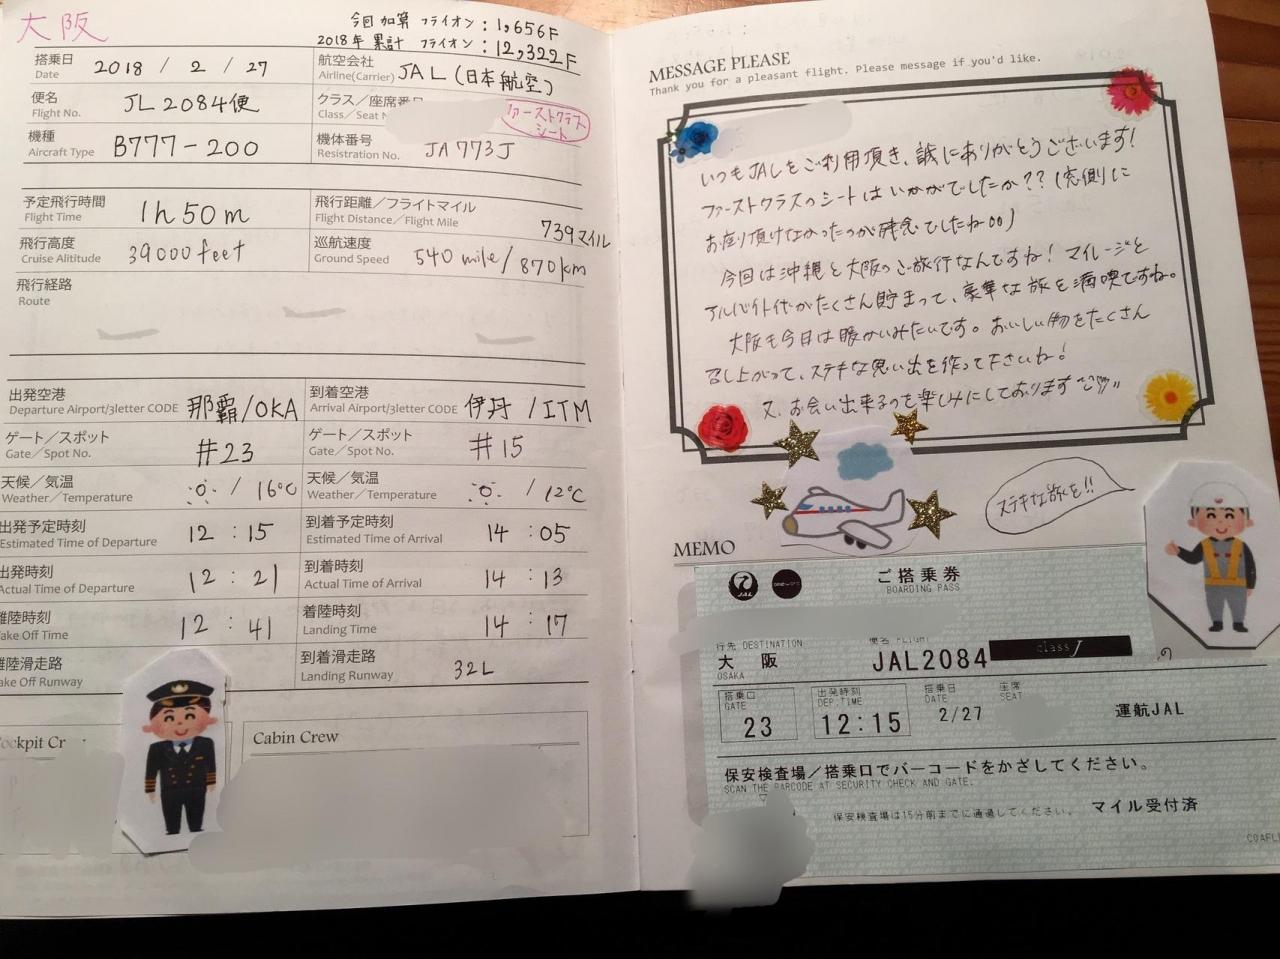 大阪
今回加算 フライオン：1,656F
2018年 累計 フライオン：12,322F
搭乗日
Date
2018 / 2 / 27
航空会社
Airline(Carrier)
JAL (日本航空)
便名
Flight No.
JL2084便
クラス／座席番号
Class／Seat N
ファーストクラス
シート
機種
Aircraft Type
B777-200
機体番号
Resistration No.
JA773J
予定飛行時間
Flight Time
1h50m
飛行距離／フライトマイル
Flight Distance／Flight Mile
739マイル
飛行高度
Cruise Alititude
39000feet
巡航速度
Ground Speed
540 mile/870km
飛行経路
Route
出発空港
Departure Airport/3letter CODE
那覇/OKA
到着空港
Arrival Airport/3letter CODE
伊丹/ITM
ゲート／スポット
Gate／Spot No.
#23
ゲート／スポット
Gate／Spot No.
#15
天候／気温
Weather／Temperature
/ 16℃
天候／気温
Weather／Temperature
/ 12℃
出発予定時刻
Estimated Time of Departure
12：15
到着予定時刻
Estimated Time of Arrival
14：05
出発時刻
Actual Time of Departure
12：21
到着時刻
Actual Time of Arrival
14：13
離陸時刻
Take Off Time
12：41
着陸時刻
Landing Time
14：17
離陸滑走路
Take Off Runway
到着滑走路
Landing Runway
32L
Cockpit Cr
Cabin Crew
MESSAGE PLEASE
Thank you for a pleasant flight. Please message if you'd like.
いつもJALをご利用頂き、誠にありがとうございます!
ファーストクラスのシートはいかがでしたか??(窓側に
お座り頂けなかったのが残念でしたね。。)
今回は沖縄と大阪のご旅行なんですね! マイレージと
アルバイト代がたくさん貯まって、豪華な旅を満喫ですね。
大阪も今日は暖かいみたいです。おいしい物をたくさん
召し上がって、ステキな思い出を作って下さいね!
又、お会い出来るのを楽しみにしております
ステキな旅を!!
MEMO
JAL
ご搭乗券
BOARDING PASS
行先 DESTINATION
大 阪
OSAKA
便名 FLIGHT
JAL2084
class J
の
搭乗口
GATE
23
出発時刻
DEP.TIME
12:15
搭乗日
DATE
2/27
座席
SEAT
運航JAL
保安検査場／搭乗口でバーコードをかざしてください。
SCAN THE BARCODE AT SECURITY CHECK AND GATE.
保安検査場は15分前までに通過してください。
マイル受付済